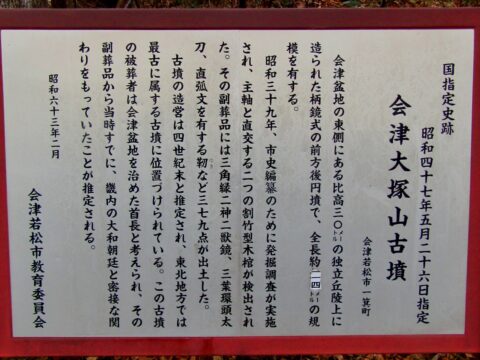 国指定史跡
昭和四十七年五月二十六日指定
会津大塚山古墳
会津若松市一箕町
会津盆地の東側にある比高三〇メートルの独立丘陵上に
造られた柄鏡式の前方後円墳で、全長約一一四メートルの規
模を有する。
昭和三十九年、市史編纂のために発掘調査が実施
され、主軸と直交する二つの割竹型木棺が検出され
た。その副葬品には三角縁二神二獣鏡、三葉環頭太
刀、直弧文を有する靭など三七九点が出土した。
古墳の造営は四世紀末と推定され、東北地方では
最古に属する古墳に位置づけられている。この古墳
の被葬者は会津盆地を治めた首長と考えられ、その
副葬品から当時すでに、畿内の大和朝廷と密接な関
わりをもっていたことが推定される。
昭和六十三年二月
会津若松市教育委員会